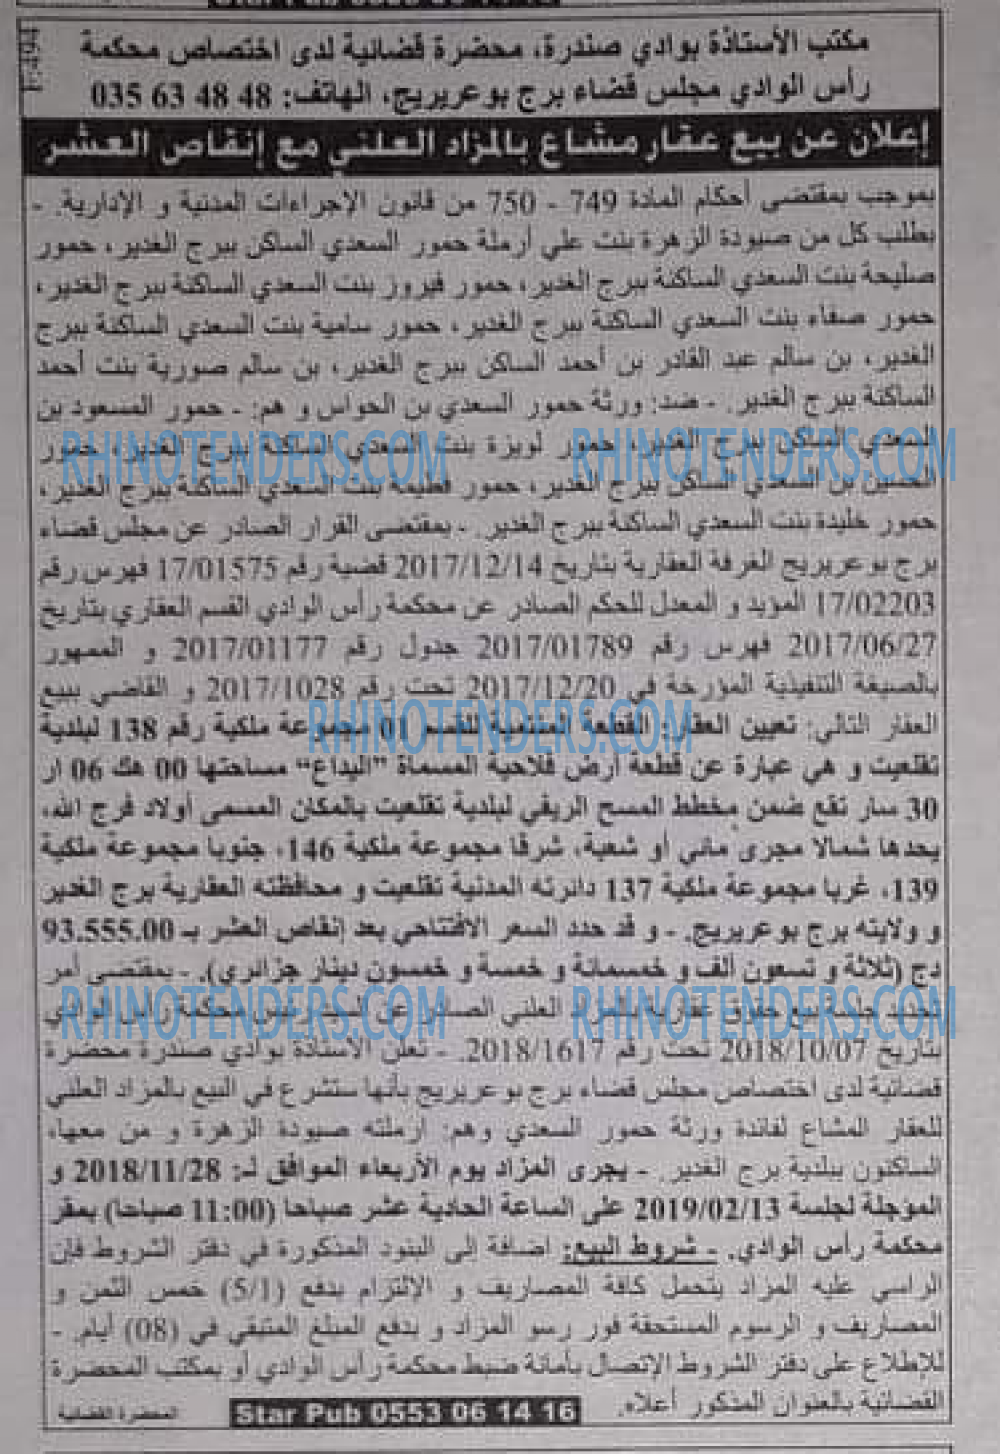 F:494
مكتب الأستاذة بوادي صندرة، محضرة قضائية لدى اختصاص محكمة
رأس الوادي مجلس قضاء برج بوعريريج، الهاتف: 48 48 63 035
إعلان عن بيع عقار مشاع بالمزاد العلني مع إنقاص العشر
بموجب بمقتضى أحكام المادة 749 - 750 من قانون الإجراءات المدنية و الإدارية. -
بطلب كل من صيودة الزهرة بنت علي أرملة حمور السعدي الساكن ببرج الغدير، حمور
صليحة بنت السعدي الساكنة ببرج الغدير، حمور فيروز بنت السعدي الساكنة ببرج الغدير،
حمور صفاء بنت السعدي الساكنة ببرج الغدير، حمور سامية بنت السعدي الساكنة ببرج
الغدير، بن سالم عبد القادر بن أحمد الساكن ببرج الغدير، بن سالم صورية بنت أحمد
الساكنة ببرج الغدير. - ضد: ورثة حمور السعدي بن الحواس و هم: - حمور المسعود بن
السعدي الساكن ببرج الغدير، حمور لويزة بنت السعدي الساكنة ببرج الغدير، حمور
الحسين بن السعدي الساكن ببرج الغدير، حمور فطيمة بنت السعدي الساكنة ببرج الغدير،
حمور خليدة بنت السعدي الساكنة ببرج الغدير. - بمقتضى القرار الصادر عن مجلس قضاء
برج بوعريريج الغرفة العقارية بتاريخ 2017/12/14 قضية رقم 17/01575 فهرس رقم
17/02203 المؤيد و المعدل للحكم الصادر عن محكمة رأس الوادي القسم العقاري بتاريخ
2017/06/27 فهرس رقم 2017/01789 جدول رقم 2017/01177 و الممهور
بالصيغة التنفيذية المؤرخة في 2017/12/20 تحت رقم 2017/1028 و القاضي ببيع
العقار التالي: تعيين العقار: القطعة المنتمية للقسم 01 مجموعة ملكية رقم 138 لبلدية
تقلعيت و هي عبارة عن قطعة أرض فلاحية المسماة "البداع" مساحتها 00 هك 06 ار
30 سار تقع ضمن مخطط المسح الريفي لبلدية تقلعيت بالمكان المسمى أولاد فرج الله،
يحدها شمالا مجرى مائي أو شعبة، شرقا مجموعة ملكية 146، جنوبا مجموعة ملكية
139، غربا مجموعة ملكية 137 دائرته المدنية تقلعيت و محافظته العقارية برج الغدير
و ولايته برج بوعريريج. - و قد حدد السعر الافتتاحي بعد إنقاص العشر بـ 93.555.00
دج (ثلاثة و تسعون ألف و خمسمائة و خمسة و خمسون دينار جزائري). - بمقتضى أمر
تحديد جلسة بيع حقوق عقارية بالمزاد العلني الصادر عن السيد رئيس محكمة رأس الوادي
بتاريخ 2018/10/07 تحت رقم 2018/1617. - تعلن الأستاذة بوادي صندرة محضرة
قضائية لدى اختصاص مجلس قضاء برج بوعريريج بأنها ستشرع في البيع بالمزاد العلني
للعقار المشاع لفائدة ورثة حمور السعدي وهم: ارملته صيودة الزهرة و من معها،
الساكنون ببلدية برج الغدير. - يجرى المزاد يوم الأربعاء الموافق لـ: 2018/11/28 و
الموجلة لجلسة 2019/02/13 على الساعة الحادية عشر صباحا (11:00 صباحا) بمقر
محكمة رأس الوادي. - شروط البيع: اضافة الى البنود المذكورة في دفتر الشروط فإن
الراسي عليه المزاد يتحمل كافة المصاريف و الإلتزام بدفع (5/1) خمس الثمن و
المصاريف و الرسوم المستحقة فور رسو المزاد و بدفع المبلغ المتبقي في (08) أيام. -
للإطلاع على دفتر الشروط الإتصال بأمانة ضبط محكمة رأس الوادي أو بمكتب المحضرة
القضائية بالعنوان المذكور أعلاه.
المحضرة القضائية
Star Pub 0553 06 14 16
RHINOTENDERS.COM
RHINOTENDERS.COM
RHINOTENDERS.COM
RHINOTENDERS.COM
RHINOTENDERS.COM